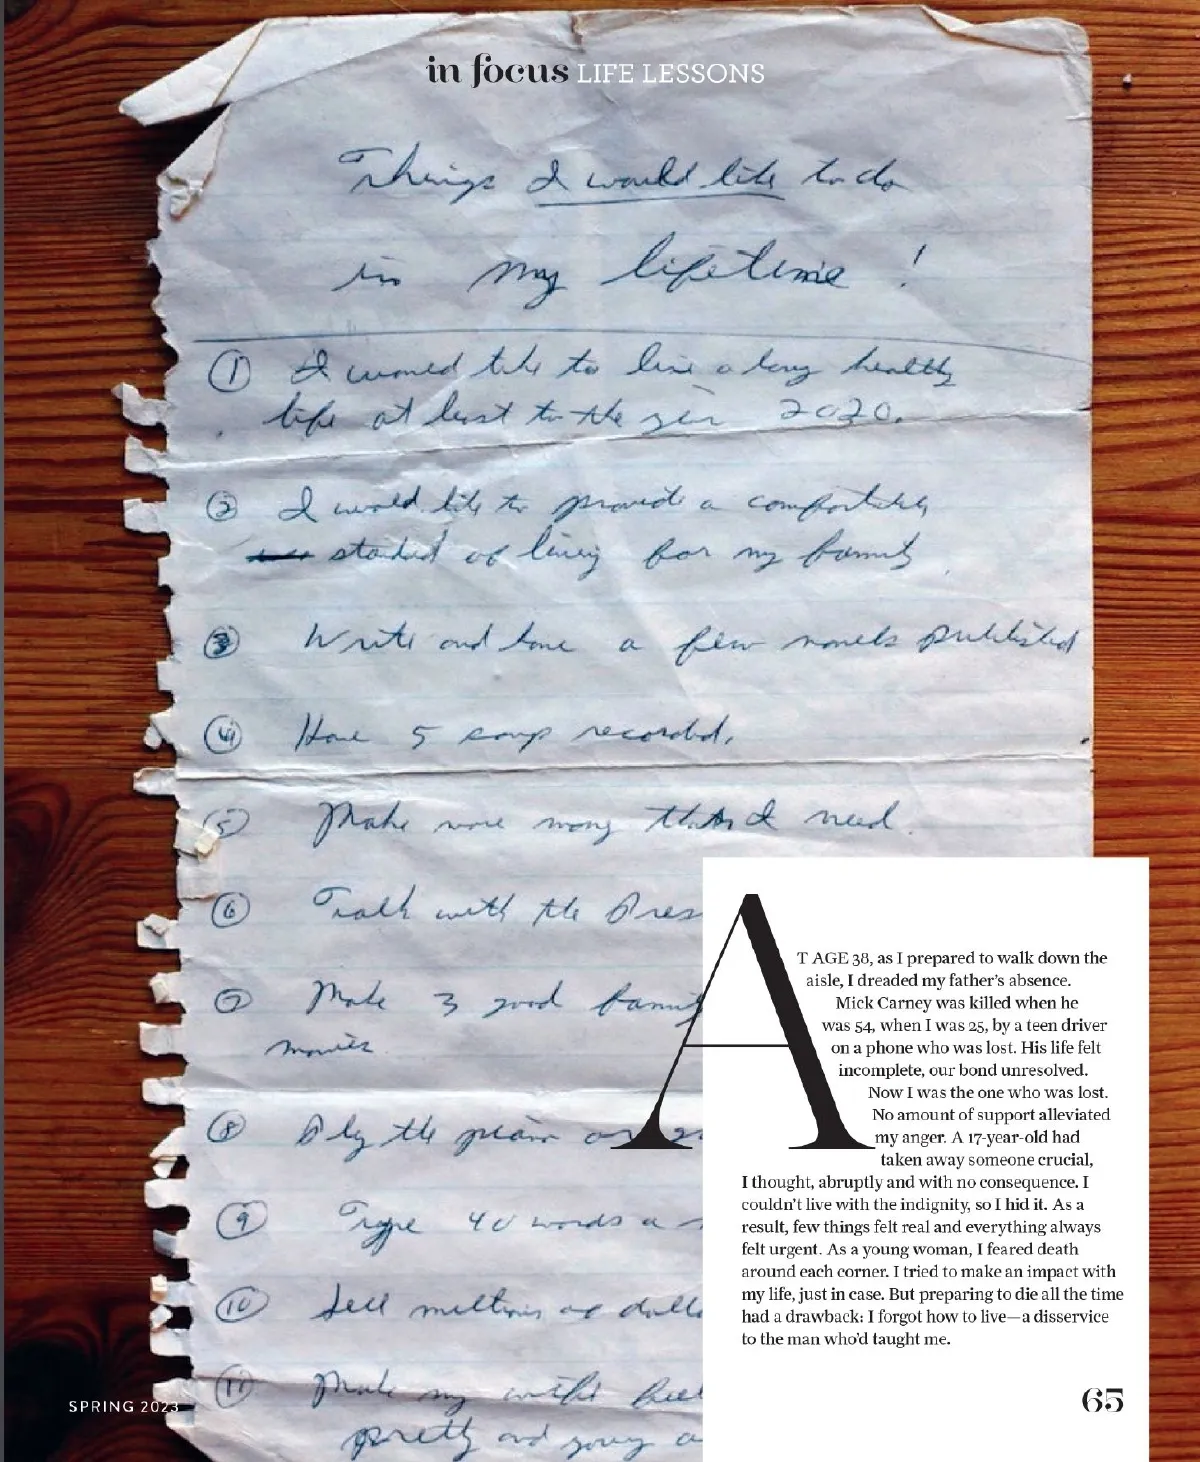 in focus LIFE LESSONS
Things I would like to do
in my lifetime!
① I would like to live a long healthy
life at least to the year 2020.
② I would like to provide a comfortable
standard of living for my family
③ Write and have a few novels published
④ Have 5 songs recorded.
⑤ Make more money than I need.
⑥ Talk with the Pres
⑦ Make 3 good family
movies.
⑧ Play the piano or
⑨ Type 40 words a
⑩ Sell millions of dolla
⑪ Make my wife feel
pretty and young a
AT AGE 38, as I prepared to walk down the
aisle, I dreaded my father's absence.
Mick Carney was killed when he
was 54, when I was 25, by a teen driver
on a phone who was lost. His life felt
incomplete, our bond unresolved.
Now I was the one who was lost.
No amount of support alleviated
my anger. A 17-year-old had
taken away someone crucial,
I thought, abruptly and with no consequence. I
couldn't live with the indignity, so I hid it. As a
result, few things felt real and everything always
felt urgent. As a young woman, I feared death
around each corner. I tried to make an impact with
my life, just in case. But preparing to die all the time
had a drawback: I forgot how to live—a disservice
to the man who'd taught me.
SPRING 2023
65